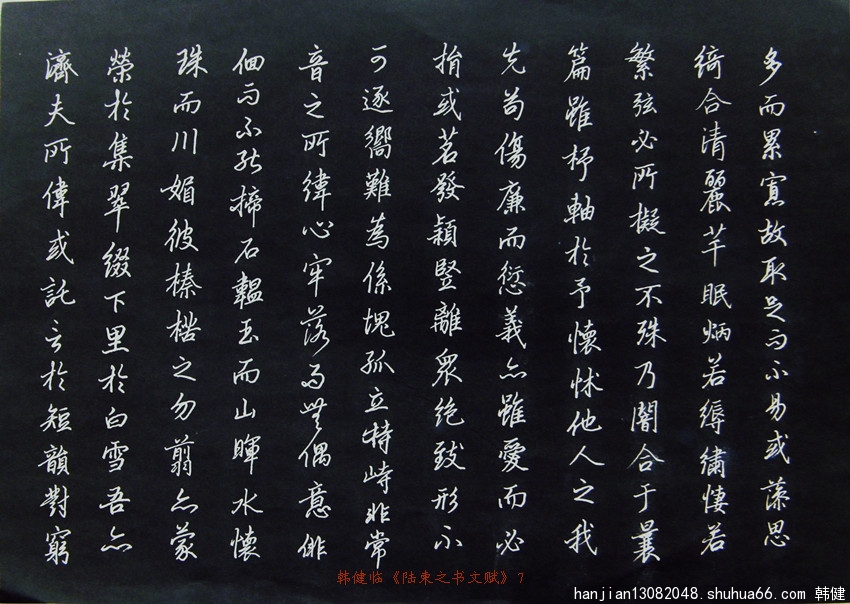 多而累寡故取足而不易或藻思
綺合清麗芊眠炳若縟繡悽若
繁弦必所擬之不殊乃闇合于曩
篇雖杼軸於予懷怵他人之我
先苟傷廉而愆義亦雖愛而必
捐或苕發穎豎離衆絶致形不
可逐嚮難為係塊孤立特峙非常
音之所緯心牢落而無偶意俳
佃而不能揥石韞玉而山暉水懷
珠而川媚彼榛楛之勿翦亦蒙
榮於集翠綴下里於白雪吾亦
濟夫所偉或託言於短韻對窮
韩健临《陆柬之书文赋》7
hanjian13082048.shuhua66.com 韩健